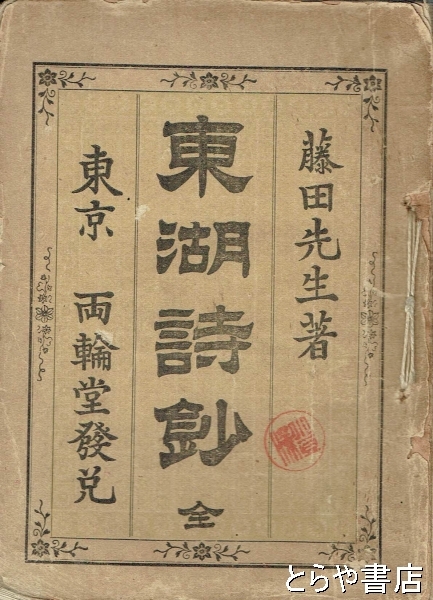 藤田先生著
東湖詩鈔 全
東京 両輪堂發兌
とらや書店